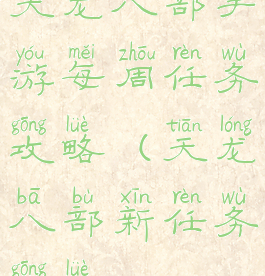 天龙八部手
yóu měi zhōu rèn wù
游每周任务
gōng lüè tiān lóng
攻略（天龙
bā bù xīn rèn wù
八部新任务
gōng lüè